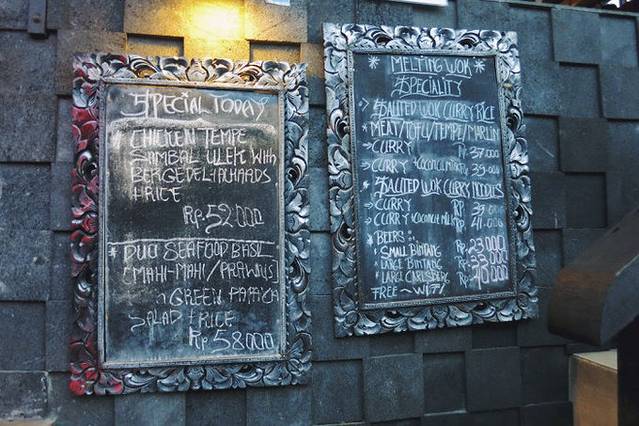 SPECIAL TODAY
CHICKEN TEMPE
SAMBAL ULEK WITH
BERGEDEL + ACHARDS
+ RICE
Rp. 52 000
* DUO SEAFOOD BASIL
(MAHI-MAHI/PRAWNS)
GREEN PAPAYA
SALAD + RICE
Rp. 58 000
* MELTING WOK *
SPECIALITY
→ SAUTED WOK CURRY RICE
* MEAT/TOFU/TEMPE/MARLIN
→ CURRY Rp 37.000
→ CURRY + COCONUT MILK Rp 39.000
* SAUTED WOK CURRY NOODLES
→ CURRY Rp 39.000
→ CURRY + COCONUT MILK Rp 41.000
* BEERS:
SMALL BINTANG Rp 23 000
LARGE BINTANG Rp 33 000
LARGE CARLSBERG Rp 40 000
FREE - WIFI